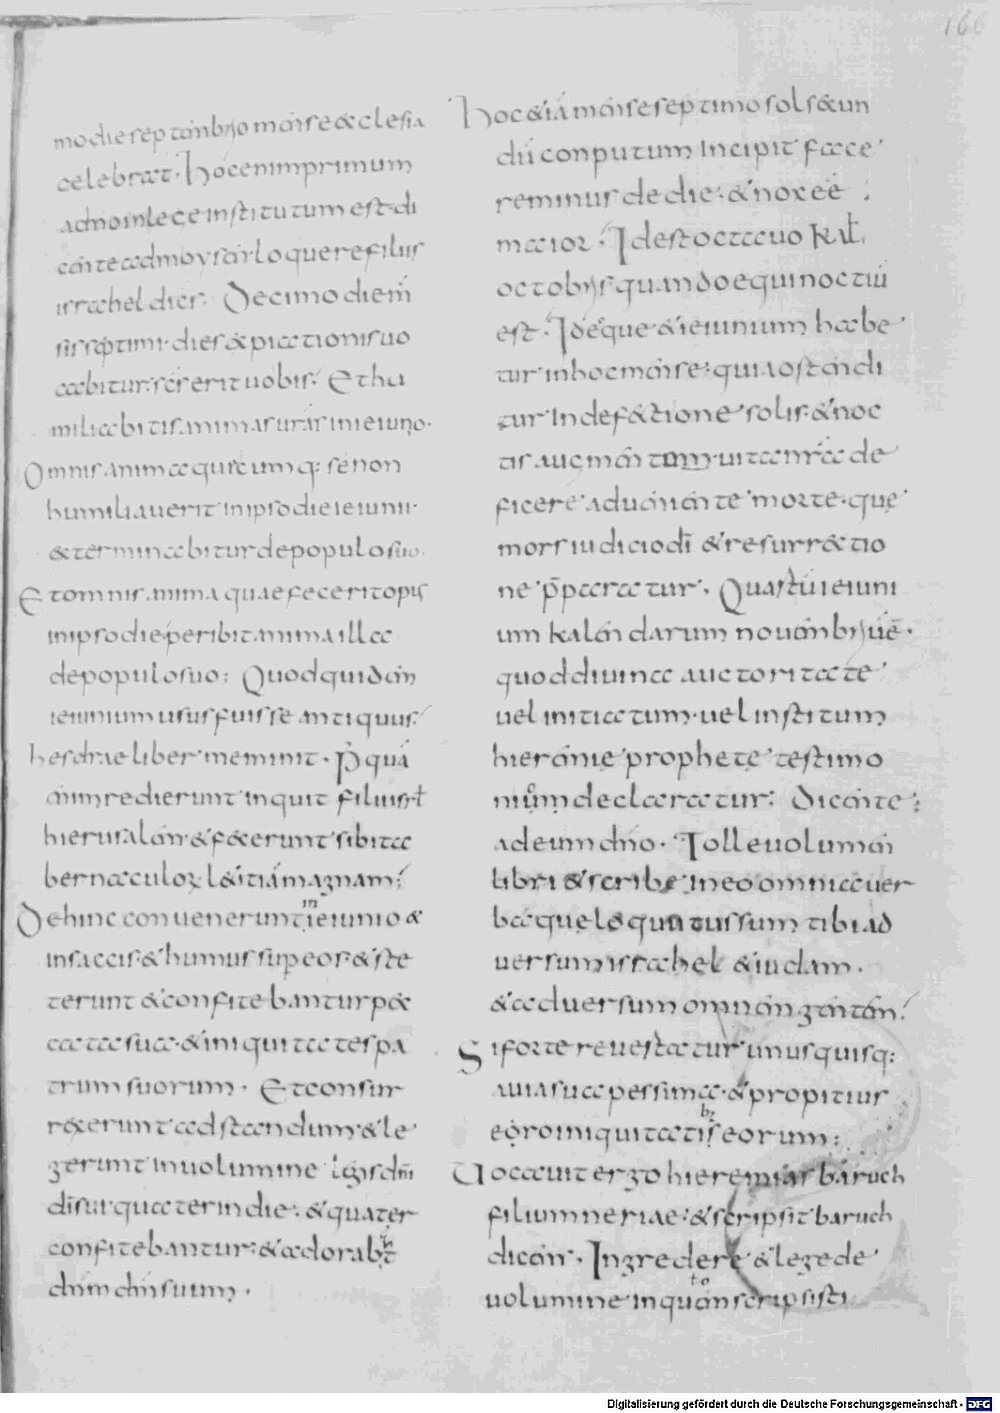 166
mo die septembrio mense ecclesia
celebrat. Hoc enim primum
adnoin lege institutum est di
cente ad moysen loquere filiis
israhel dies: Decimo diem̅
sis septimi. dies expiationis uo
cabitur: scs erit uobis. Et hu
miliabitis. animas uras in ieiuno.
Omnis anima quecumq: se non
humiliauerit in ipso die ieiunii.
& terminabitur de populo suo.
Et omnis. anima quae fecerit opus
in ipso die peribit anima illa
de populo suo: Quod quidem
ieiunium usus fuisse antiquus.
hesdrae liber meminit.
enim redierunt inquit filii isrl
hierusalem. & fecerunt sibi ta
bernaculo & lætitiam magnam.
Dehinc conuenerunt in ieiunio &
in saccis. & humus super eos. & ste
terunt & confitebantur pec
cata sua. & iniquitates pa
trum suorum. Et consur
rexerunt ad standum. & le
gerunt in uolumine legis dni
di sui quater in die. & quater
confitebantur: & adorabant
dnm dm suum.
Hoc etiam mense septimo sol secun
du conputum incipit face
re minus de die. & nox eé
maior. Id est octauo kal.
octobris. quando equinoctiu
est. Ideoque & ieiunium habe
tur in hoc mense: quia ostendi
tur in defectione solis. & noc
tis augmentum. uita nr̅a de
ficere adueniente morte. que
mors iudicio di & resurrectio
ne r̅p̅aratur. Quartu ieiuni
um kalendarum nouenbriue.
quod diuina auctoritate
uel initiatum. uel institum
hieremie prophete testimo
nium declaratur: Dicente
ad eum dno. Tolle uolumen
libri & scribe in eo omnia uer
ba que loquutus sum tibi ad
uersum israhel & iudam.
& aduersum omnem gentem.
Si forte reuertatur unusquisq:
a uia sua pessima. & propitius
ero iniquitatibus eorum:
Uocauit ergo hieremias baruch
filium neriae: & scripsit baruch
dicen. Ingredere & lege de
uolumine in quo scripsisti
Digitalisierung gefördert durch die Deutsche Forschungsgemeinschaft - DFG